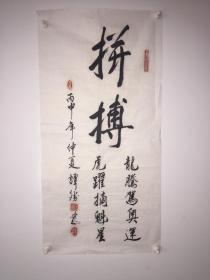 拼搏
龍騰駕奧運
虎躍摘魁星
丙申年仲夏